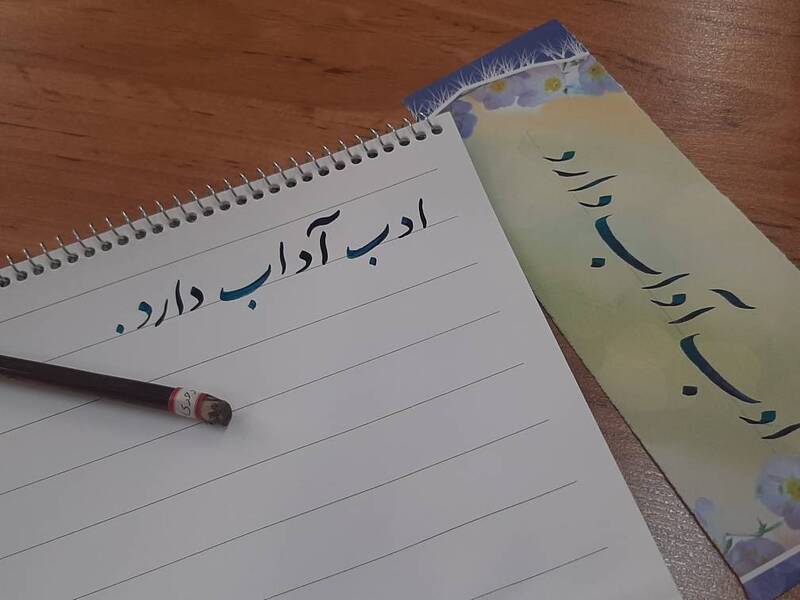 ادب آداب دارد.
ادب آداب دارد